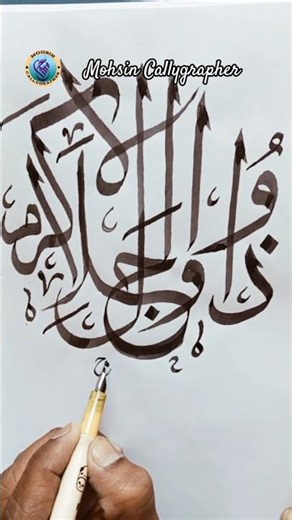 MOHSIN CALLYGRAPHER
Mohsin Callygrapher
ذُو الجلال والاكرام